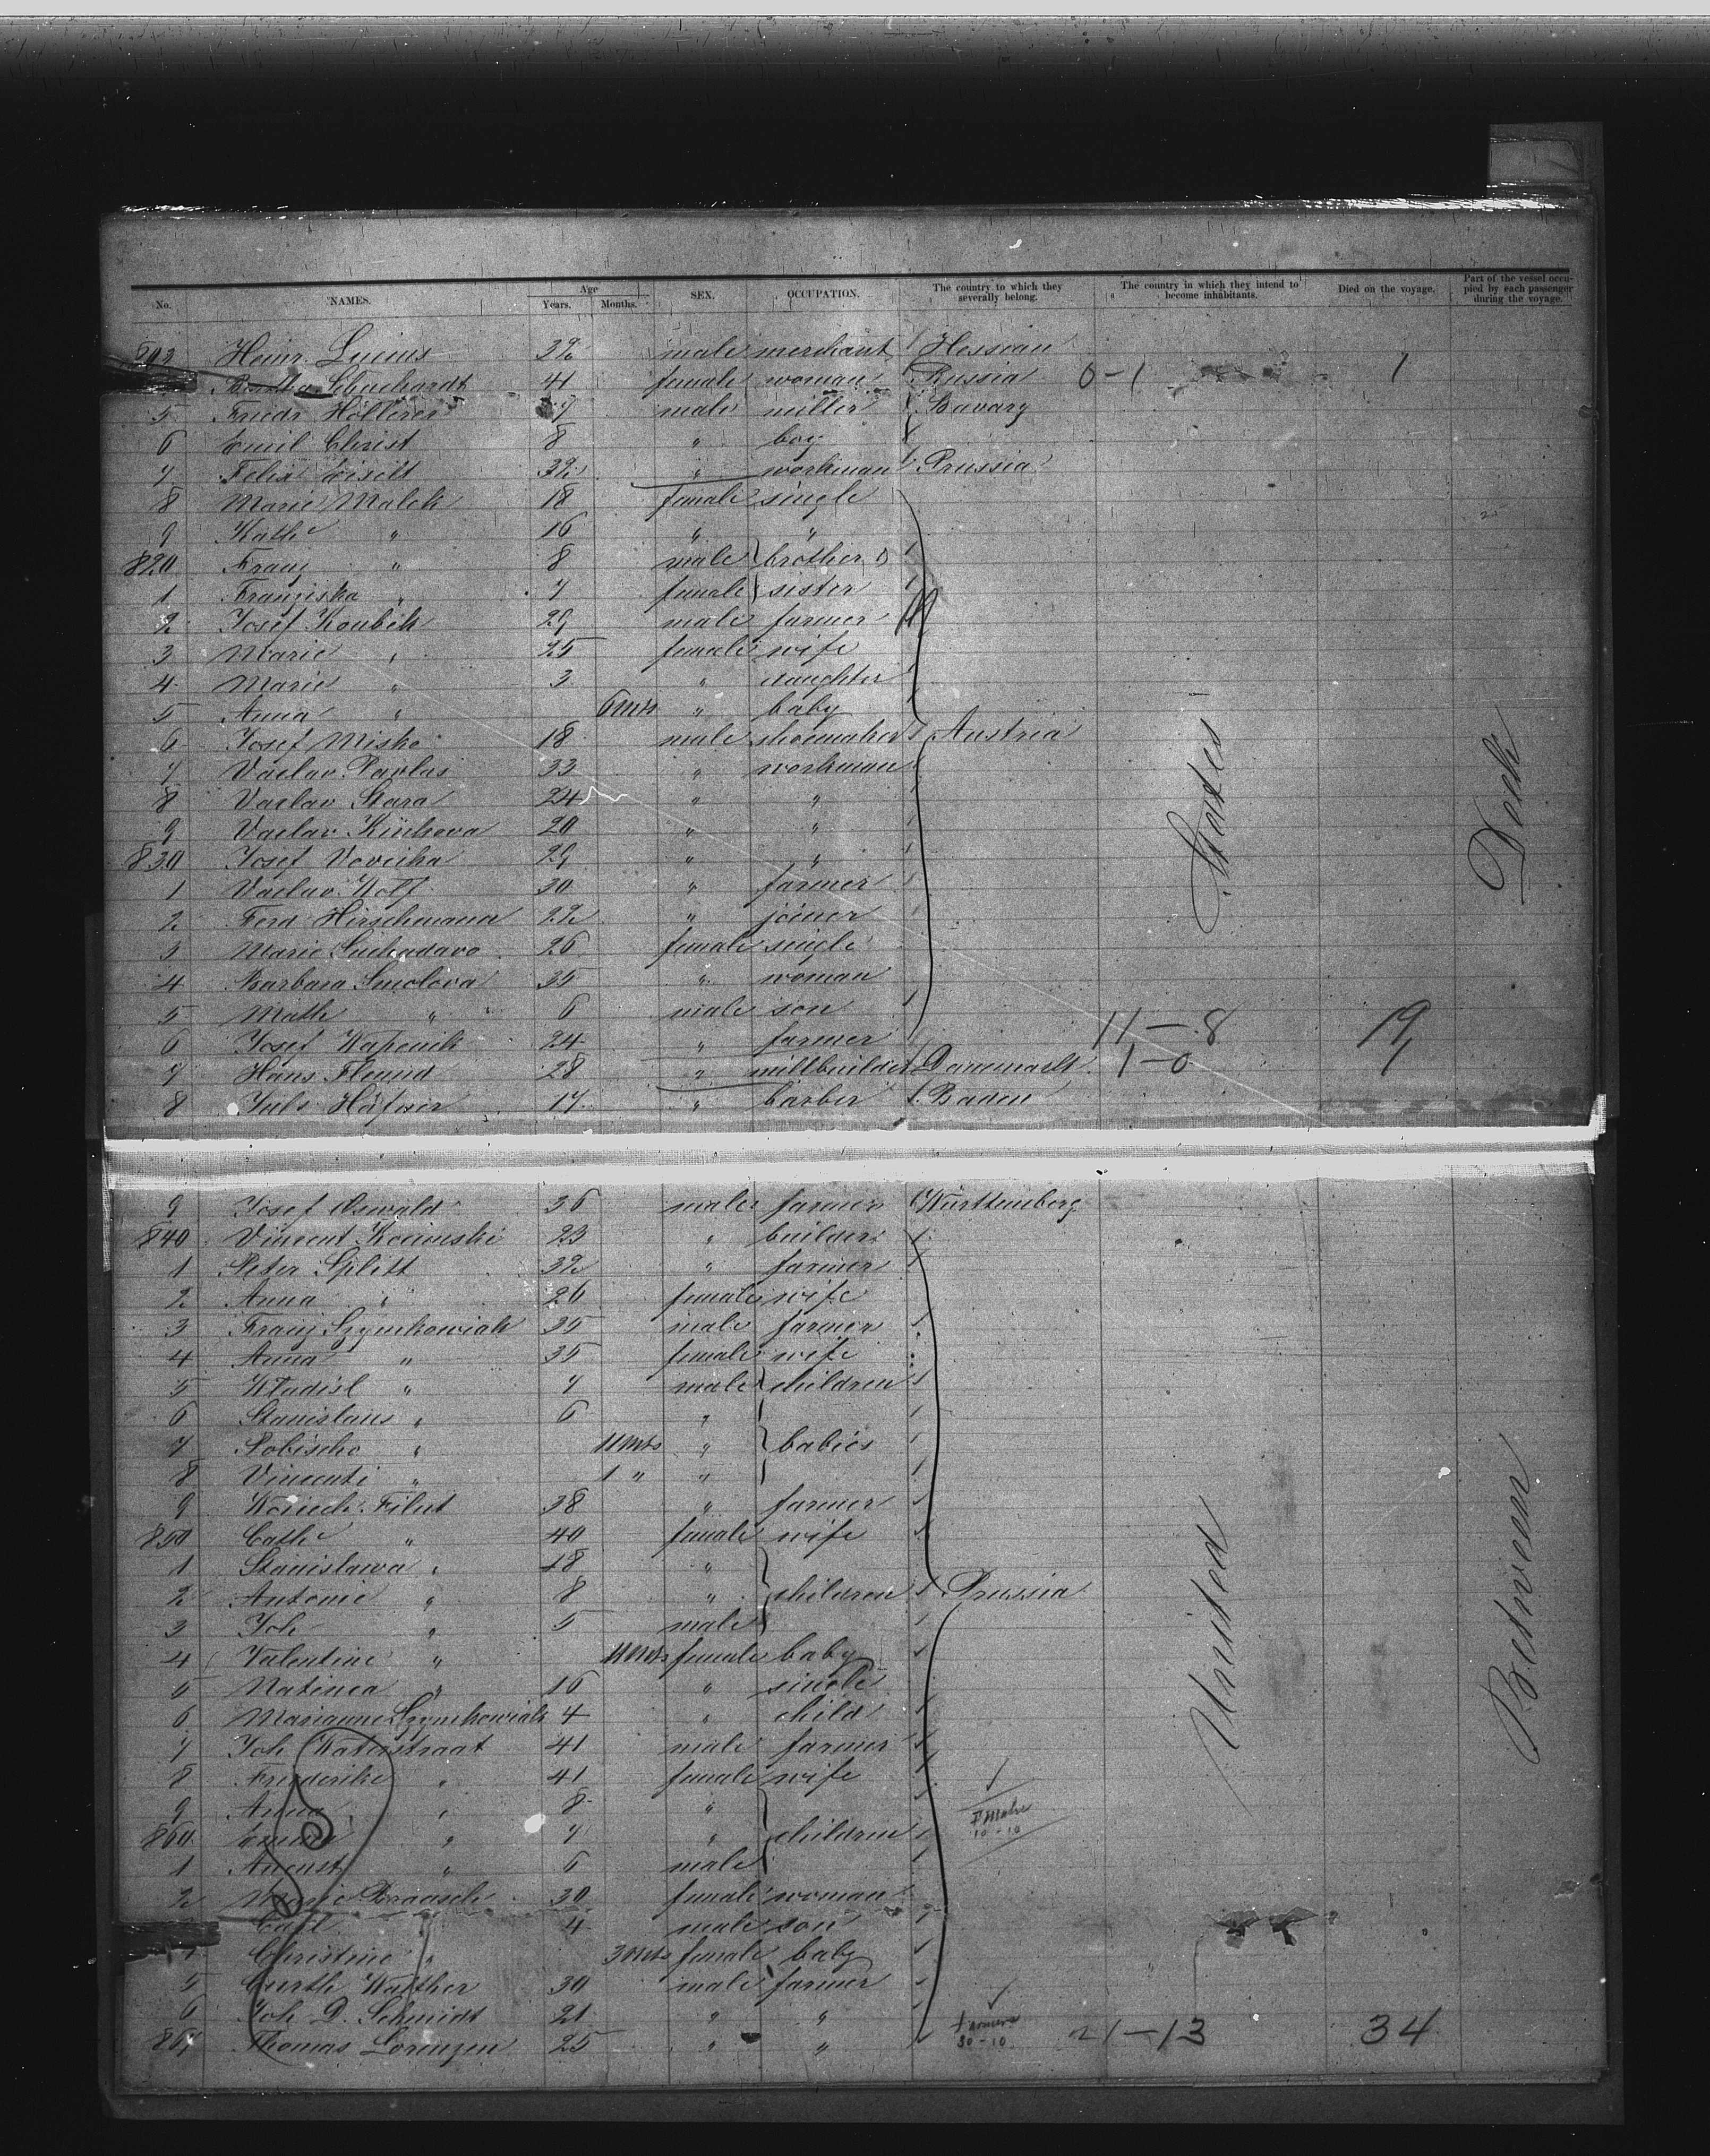 No. NAMES. Age Years. Months. SEX. OCCUPATION. The country to which they severally belong. The country in which they intend to become inhabitants. Died on the voyage. Part of the vessel occupied by each passenger during the voyage.
Heinr. Lucius 32 male merchant Hessian
41 female woman Russia 0-1 1
5 Friedr Höllerer male miller Bavary
6 Emil Christ 8 " boy
7 Felix Eiselt 32 " workman Prussia
8 Marie Malek 18 female single
9 Kath " 16 " "
820 Franz " 8 male brother
1 Franziska " 7 female sister
2 Josef Koubik 29 male farmer
3 Marie " 25 female wife
4 Marie " 3 " daughter
5 Anna " 6 Mts " baby
6 Josef Misko 18 male shoemaker Austria
7 Vaclav Pavlas 33 " workman
8 Vaclav Stara 24 " "
9 Vaclav 20 " "
830 Josef 29 " "
1 Vaclav Wolf 30 " farmer
2 Ferd Hirschmann 22 " joiner
3 Marie 26 female single
4 Barbara Smolova 35 " woman
5 Math " 6 male son
6 Josef 24 " farmer 11-8 19
7 Hans 28 " millbuilder Danemark 1-0 1
8 Juls Häfner 17 " barber Baden
9 Josef Oswald 36 male farmer Württemberg
840 Vincent 23 " builder
1 Peter Splitt 32 " farmer
2 Anna " 26 female wife
3 Franz Szymkowiak 35 male farmer
4 Anna " 35 female wife
5 Wladisl " 7 male children
6 Stanislaus " 6 "
7 " 11 Mts " babies
8 Vincenti " 1 " "
9 38 " farmer
850 Cath " 40 female wife
1 Stanislawa " 18 "
2 Antonie " 8 " children Prussia
3 Joh " 5 male
4 Valentine " 11 Mts female baby
5 " 16 " single
6 Marianne Szymkowiak 4 " child
7 Joh Waterstraat 41 male farmer
8 Friederike " 41 female wife
9 Anna " 8 "
860 " 7 " children 10-10
1 August " 6 male
2 Marie Braasch 30 female woman
Carl " 4 male son
Christine " 3 Mts female baby
5 Walther 30 male farmer
6 Joh D. Schmidt 21 " "
867 Thomas Lorenzen 25 " " 21-13 34
United States
Between Deck